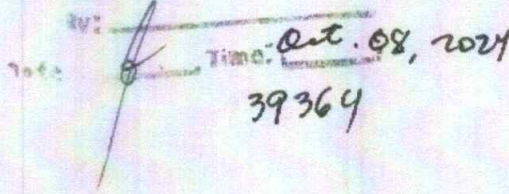 By:
Date Time: Oct. 08, 2024
39364